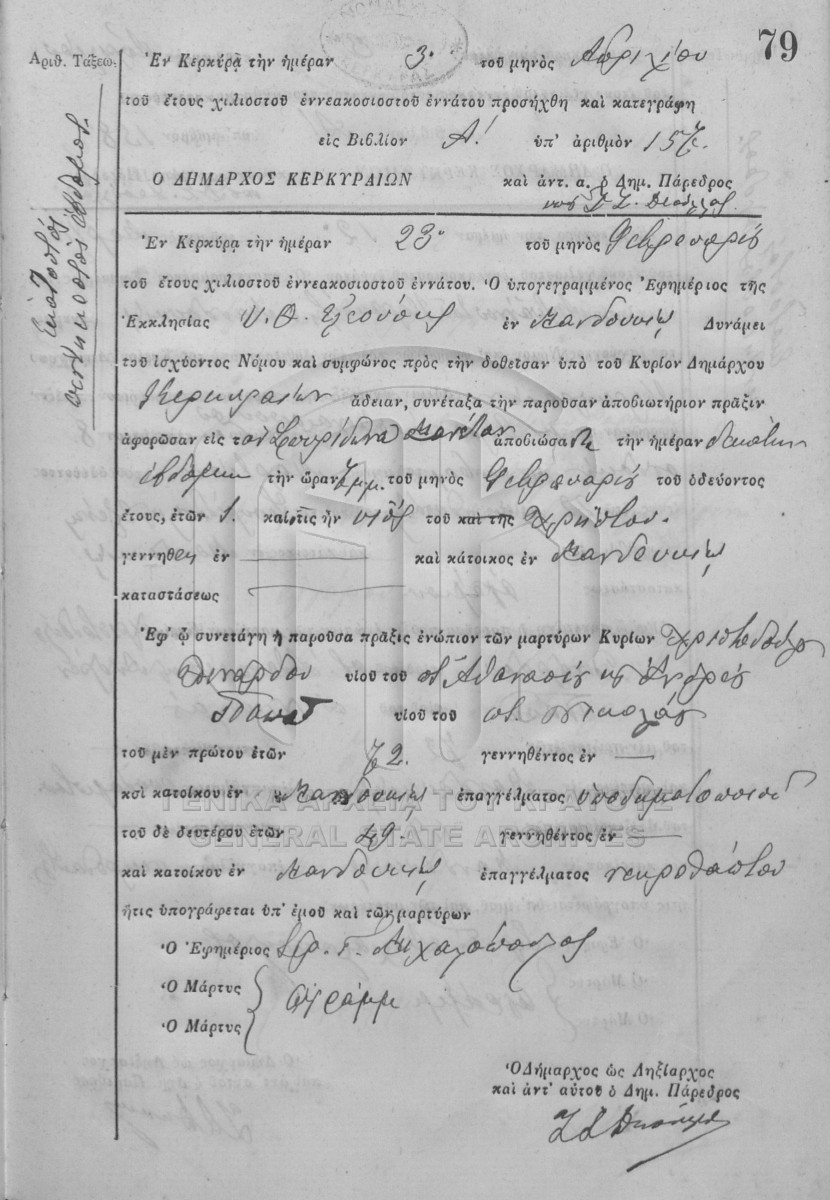 79
Ἀριθ. Τάξεω.
Ἑκατοστὸς
πεντηκοστὸς ἕβδομος
Ἐν Κερκύρᾳ τὴν ἡμέραν 3η τοῦ μηνὸς Ἀπριλίου
τοῦ ἔτους χιλιοστοῦ ἐννεακοσιοστοῦ ἐννάτου προσήχθη καὶ κατεγράφη
εἰς Βιβλίον Α! ὑπ' ἀριθμὸν 157.
Ο ΔΗΜΑΡΧΟΣ ΚΕΡΚΥΡΑΙΩΝ καὶ ἀντ. α. ὁ Δημ. Πάρεδρος
Ἐν Κερκύρᾳ τὴν ἡμέραν 23η τοῦ μηνὸς Φεβρουαρίου
τοῦ ἔτους χιλιοστοῦ ἐννεακοσιοστοῦ ἐννάτου. Ὁ ὑπογεγραμμένος Ἐφημέριος τῆς
Ἐκκλησίας Υ. Θ. Ἐλεούσης ἐν Μανδουκίῳ Δυνάμει
τοῦ ἰσχύοντος Νόμου καὶ συμφώνος πρὸς τὴν δοθεῖσαν ὑπὸ τοῦ Κυρίον Δημάρχου
Κερκυραίων ἄδειαν, συνέταξα τὴν παροῦσαν ἀποβιωτήριον πρᾶξιν
ἀφορῶσαν εἰς τὸν Σπυρίδωνα ἀποβιώσαντα τὴν ἡμέραν δεκάτην
ἑβδόμην τὴν ὥραν 7μμ. τοῦ μηνὸς Φεβρουαρίου τοῦ ὁδεύοντος
ἔτους, ἐτῶν 1. καὶ τὶς ἦν υἱὸς τοῦ καὶ τῆς Χρήστου.
γεννηθεὶς ἐν καὶ κάτοικος ἐν Μανδουκίῳ
καταστάσεως
Ἐφ' ᾧ συνετάγη ἡ παροῦσα πρᾶξις ἐνώπιον τῶν μαρτύρων Κυρίων Χριστοδούλου
υἱοῦ τοῦ ποτ. Ἀθανασίου κ Ἀνδρέου
Παππᾶ υἱοῦ τοῦ ποτ. Νικολάου
τοῦ μὲν πρώτου ἐτῶν 72. γεννηθέντος ἐν
κσὶ κατοίκου ἐν Μανδουκίῳ ἐπαγγέλματος ὑποδηματοποιοῦ
τοῦ δὲ δευτέρου ἐτῶν 49. γεννηθέντος ἐν
καὶ κατοίκου ἐν Μανδουκίῳ ἐπαγγέλματος νεκροθάπτου
ἥτις ὑπογράφεται ὑπ' ἐμοῦ καὶ τῶν μαρτύρων
Ὁ Ἐφημέριος Σπ. Γ. Μιχαλόπουλος
Ὁ Μάρτυς
Ὁ Μάρτυς
ἀγράμμ
Ὁ Δήμαρχος ὡς Ληξίαρχος
καὶ ἀντ' αὐτοῦ ὁ Δημ. Πάρεδρος
ΓΕΝΙΚΑ ΑΡΧΕΙΑ ΤΟΥ ΚΡΑΤΟΥΣ
GENERAL STATE ARCHIVES